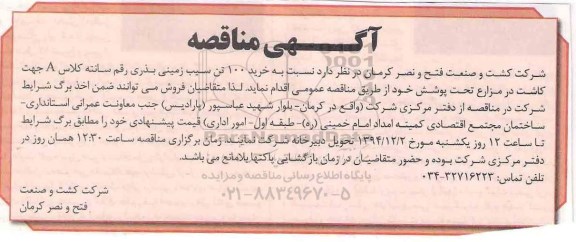 آگـــهی مناقصه
شرکت کشت و صنعت فتح و نصر کرمان در نظر دارد نسبت به خرید ۱۰۰ تن سیب زمینی بذری رقم سانته کلاس A جهت
کاشت در مزارع تحت پوشش خود از طریق مناقصه عمومی اقدام نماید. لذا متقاضیان فروش می توانند ضمن اخذ برگ شرایط
شرکت در مناقصه از دفتر مرکزی شرکت (واقع در کرمان- بلوار شهید عباسپور (پارادیس) جنب معاونت عمرانی استانداری-
ساختمان مجتمع اقتصادی کمیته امداد امام خمینی (ره)- طبقه اول - امور اداری) قیمت پیشنهادی خود را مطابق برگ شرایط
تا ساعت ۱۲ روز یکشنبه مورخ ۱۳۹۴/۱۲/۲ تحویل دبیرخانه شرکت نمایند. زمان برگزاری مناقصه ساعت ۱۲:۳۰ همان روز در
دفتر مرکزی شرکت بوده و حضور متقاضیان در زمان بازگشائی پاکتها بلامانع می باشد.
تلفن تماس: ۳۲۷۱۶۲۲۳-۰۳۴
پایگاه اطلاع رسانی مناقصه و مزایده
۰۲۱-۸۸۳۴۹۶۷۰-۵
شرکت کشت و صنعت
فتح و نصر کرمان